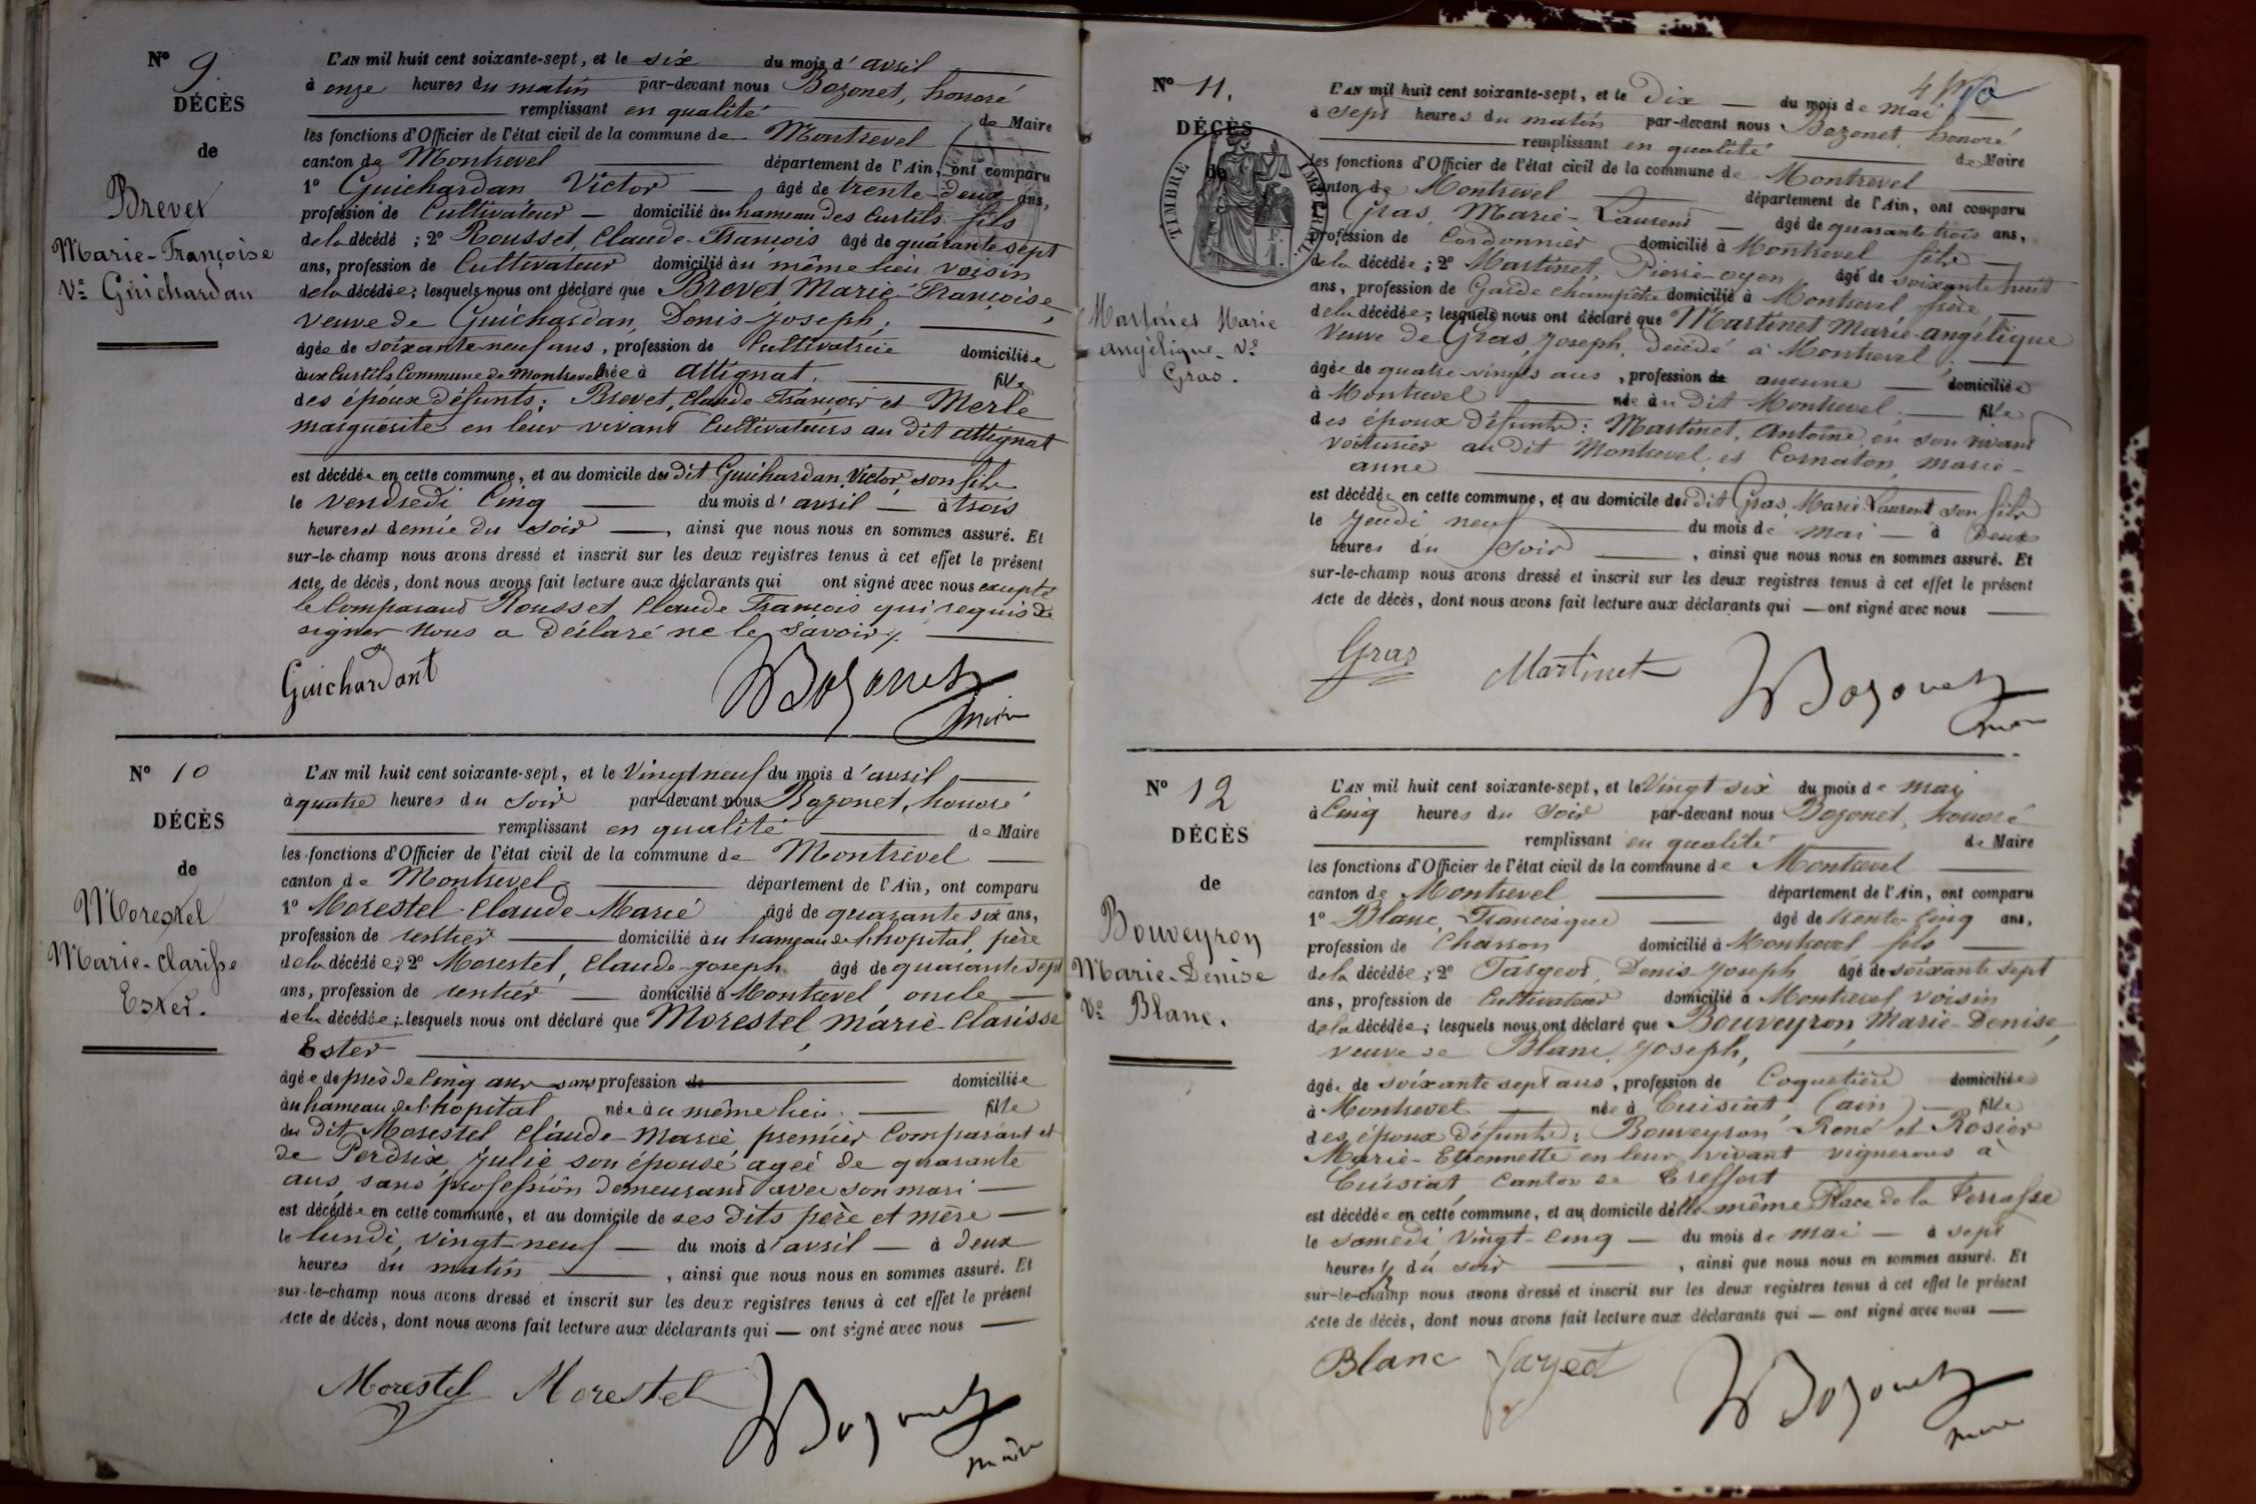 N° 9.
DÉCÈS
de
Brevet
Marie-Françoise
Ve Guichardan
L'AN mil huit cent soixante-sept, et le six du mois d'avril
à onze heures du matin par-devant nous Bozonet, honoré
remplissant en qualité de Maire
les fonctions d'Officier de l'état civil de la commune de Montrevel
canton de Montrevel département de l'Ain, ont comparu
1° Guichardan Victor âgé de trente-deux ans,
profession de Cultivateur domicilié au hameau des Curtils fils
de la décédé ; 2° Rousset, Claude-François âgé de quarante sept
ans, profession de Cultivateur domicilié au même lieu, voisin
de la décédée ; lesquels nous ont déclaré que Brevet Marie-Françoise,
veuve de Guichardan, Denis-Joseph,
âgée de soixante-neuf ans, profession de Cultivatrice domiciliée
aux Curtils Commune de Montrevel née à Attignat. fille
des époux défunts : Brevet, Claude-François et Merle
marguerite en leur vivant Cultivateurs au dit Attignat
est décédée en cette commune, et au domicile du dit Guichardan, Victor, son fils
le vendredi Cinq du mois d'avril à trois
heures et demie du soir, ainsi que nous nous en sommes assuré. Et
sur-le-champ nous avons dressé et inscrit sur les deux registres tenus à cet effet le présent
Acte de décès, dont nous avons fait lecture aux déclarants qui ont signé avec nous excepté
le Comparant Rousset, Claude François qui requis de
signer nous a déclaré ne le savoir
Guichardant Bozonet
maire
N° 10
DÉCÈS
de
Morestel
Marie-Clarisse
Ester.
L'AN mil huit cent soixante-sept, et le Vingt neuf du mois d'avril
à quatre heures du soir par-devant nous Bozonet, honoré
remplissant en qualité de Maire
les fonctions d'Officier de l'état civil de la commune de Montrevel
canton de Montrevel département de l'Ain, ont comparu
1° Morestel Claude-Marie âgé de quarante six ans,
profession de rentier domicilié au hameau de l'hopital, père
de la décédée ; 2° Morestel, Claude-Joseph âgé de quarante sept
ans, profession de rentier domicilié à Montrevel, oncle
de la décédée ; lesquels nous ont déclaré que Morestel, Marie-Clarisse
Ester
âgée de près de Cinq ans sans profession de domiciliée
au hameau de l'hopital née au même lieu. fille
du dit Morestel Claude-Marie premier Comparant et
de Perdrix Julie son épouse agée de quarante
ans, sans profession demeurant avec son mari
est décédée en cette commune, et au domicile de ses dits père et mère
le lundi, vingt-neuf du mois d'avril à deux
heures du matin, ainsi que nous nous en sommes assuré. Et
sur-le-champ nous avons dressé et inscrit sur les deux registres tenus à cet effet le présent
Acte de décès, dont nous avons fait lecture aux déclarants qui — ont signé avec nous
Morestel Morestel Bozonet
maire
N° 11.
DÉCÈS
de
TIMBRE IMPÉRIAL
Martinet Marie
angélique. Ve
Gras.
L'AN mil huit cent soixante-sept, et le Dix du mois de Mai
à Sept heures du matin par-devant nous Bozonet, honoré
remplissant en qualité de Maire
les fonctions d'Officier de l'état civil de la commune de Montrevel
canton de Montrevel département de l'Ain, ont comparu
Gras, Marie-Laurent âgé de quarante trois ans,
profession de Cordonnier domicilié à Montrevel fils
de la décédée ; 2° Martinet, Pierre-oyen âgé de soixante huit
ans, profession de Garde Champêtre domicilié à Montrevel, frère
de la décédée ; lesquels nous ont déclaré que Martinet Marie-angélique
Veuve de Gras, Joseph, décédé à Montrevel,
âgée de quatre-vingts ans, profession de aucune domiciliée
à Montrevel née au dit Montrevel. fille
des époux défunts : Martinet, Antoine, en son vivant
voiturier au dit Montrevel, et Cornaton, Marie-
anne
est décédée en cette commune, et au domicile du dit Gras, Marie Laurent son fils
le Jeudi neuf du mois de mai à Deux
heures du soir, ainsi que nous nous en sommes assuré. Et
sur-le-champ nous avons dressé et inscrit sur les deux registres tenus à cet effet le présent
Acte de décès, dont nous avons fait lecture aux déclarants qui — ont signé avec nous
Gras Martinet Bozonet
N° 12
DÉCÈS
de
Bouveyron
Marie-Denise
Ve Blanc.
L'AN mil huit cent soixante-sept, et le Vingt six du mois de Mai
à Cinq heures du soir par-devant nous Bozonet, honoré
remplissant en qualité de Maire
les fonctions d'Officier de l'état civil de la commune de Montrevel
canton de Montrevel département de l'Ain, ont comparu
1° Blanc, Francisque âgé de trente-Cinq ans,
profession de Charron domicilié à Montrevel fils
de la décédée ; 2° Fargeot, Denis Joseph âgé de soixante sept
ans, profession de Cultivateur domicilié à Montrevel voisin
de la décédée ; lesquels nous ont déclaré que Bouveyron, Marie-Denise,
veuve de Blanc, Joseph,
âgée de soixante sept ans, profession de Coquetière domiciliée
à Montrevel née à Cuisiat, (ain) fille
des époux défunts : Bouveyron René et Rosier
Marie-Etiennette en leur vivant vignerons à
Cuisiat, Canton de Treffort
est décédée en cette commune, et au domicile d'elle même Place de la Terrasse
le samedi vingt-Cinq du mois de mai à sept
heures du soir, ainsi que nous nous en sommes assuré. Et
sur-le-champ nous avons dressé et inscrit sur les deux registres tenus à cet effet le présent
Acte de décès, dont nous avons fait lecture aux déclarants qui — ont signé avec nous
Blanc Bozonet